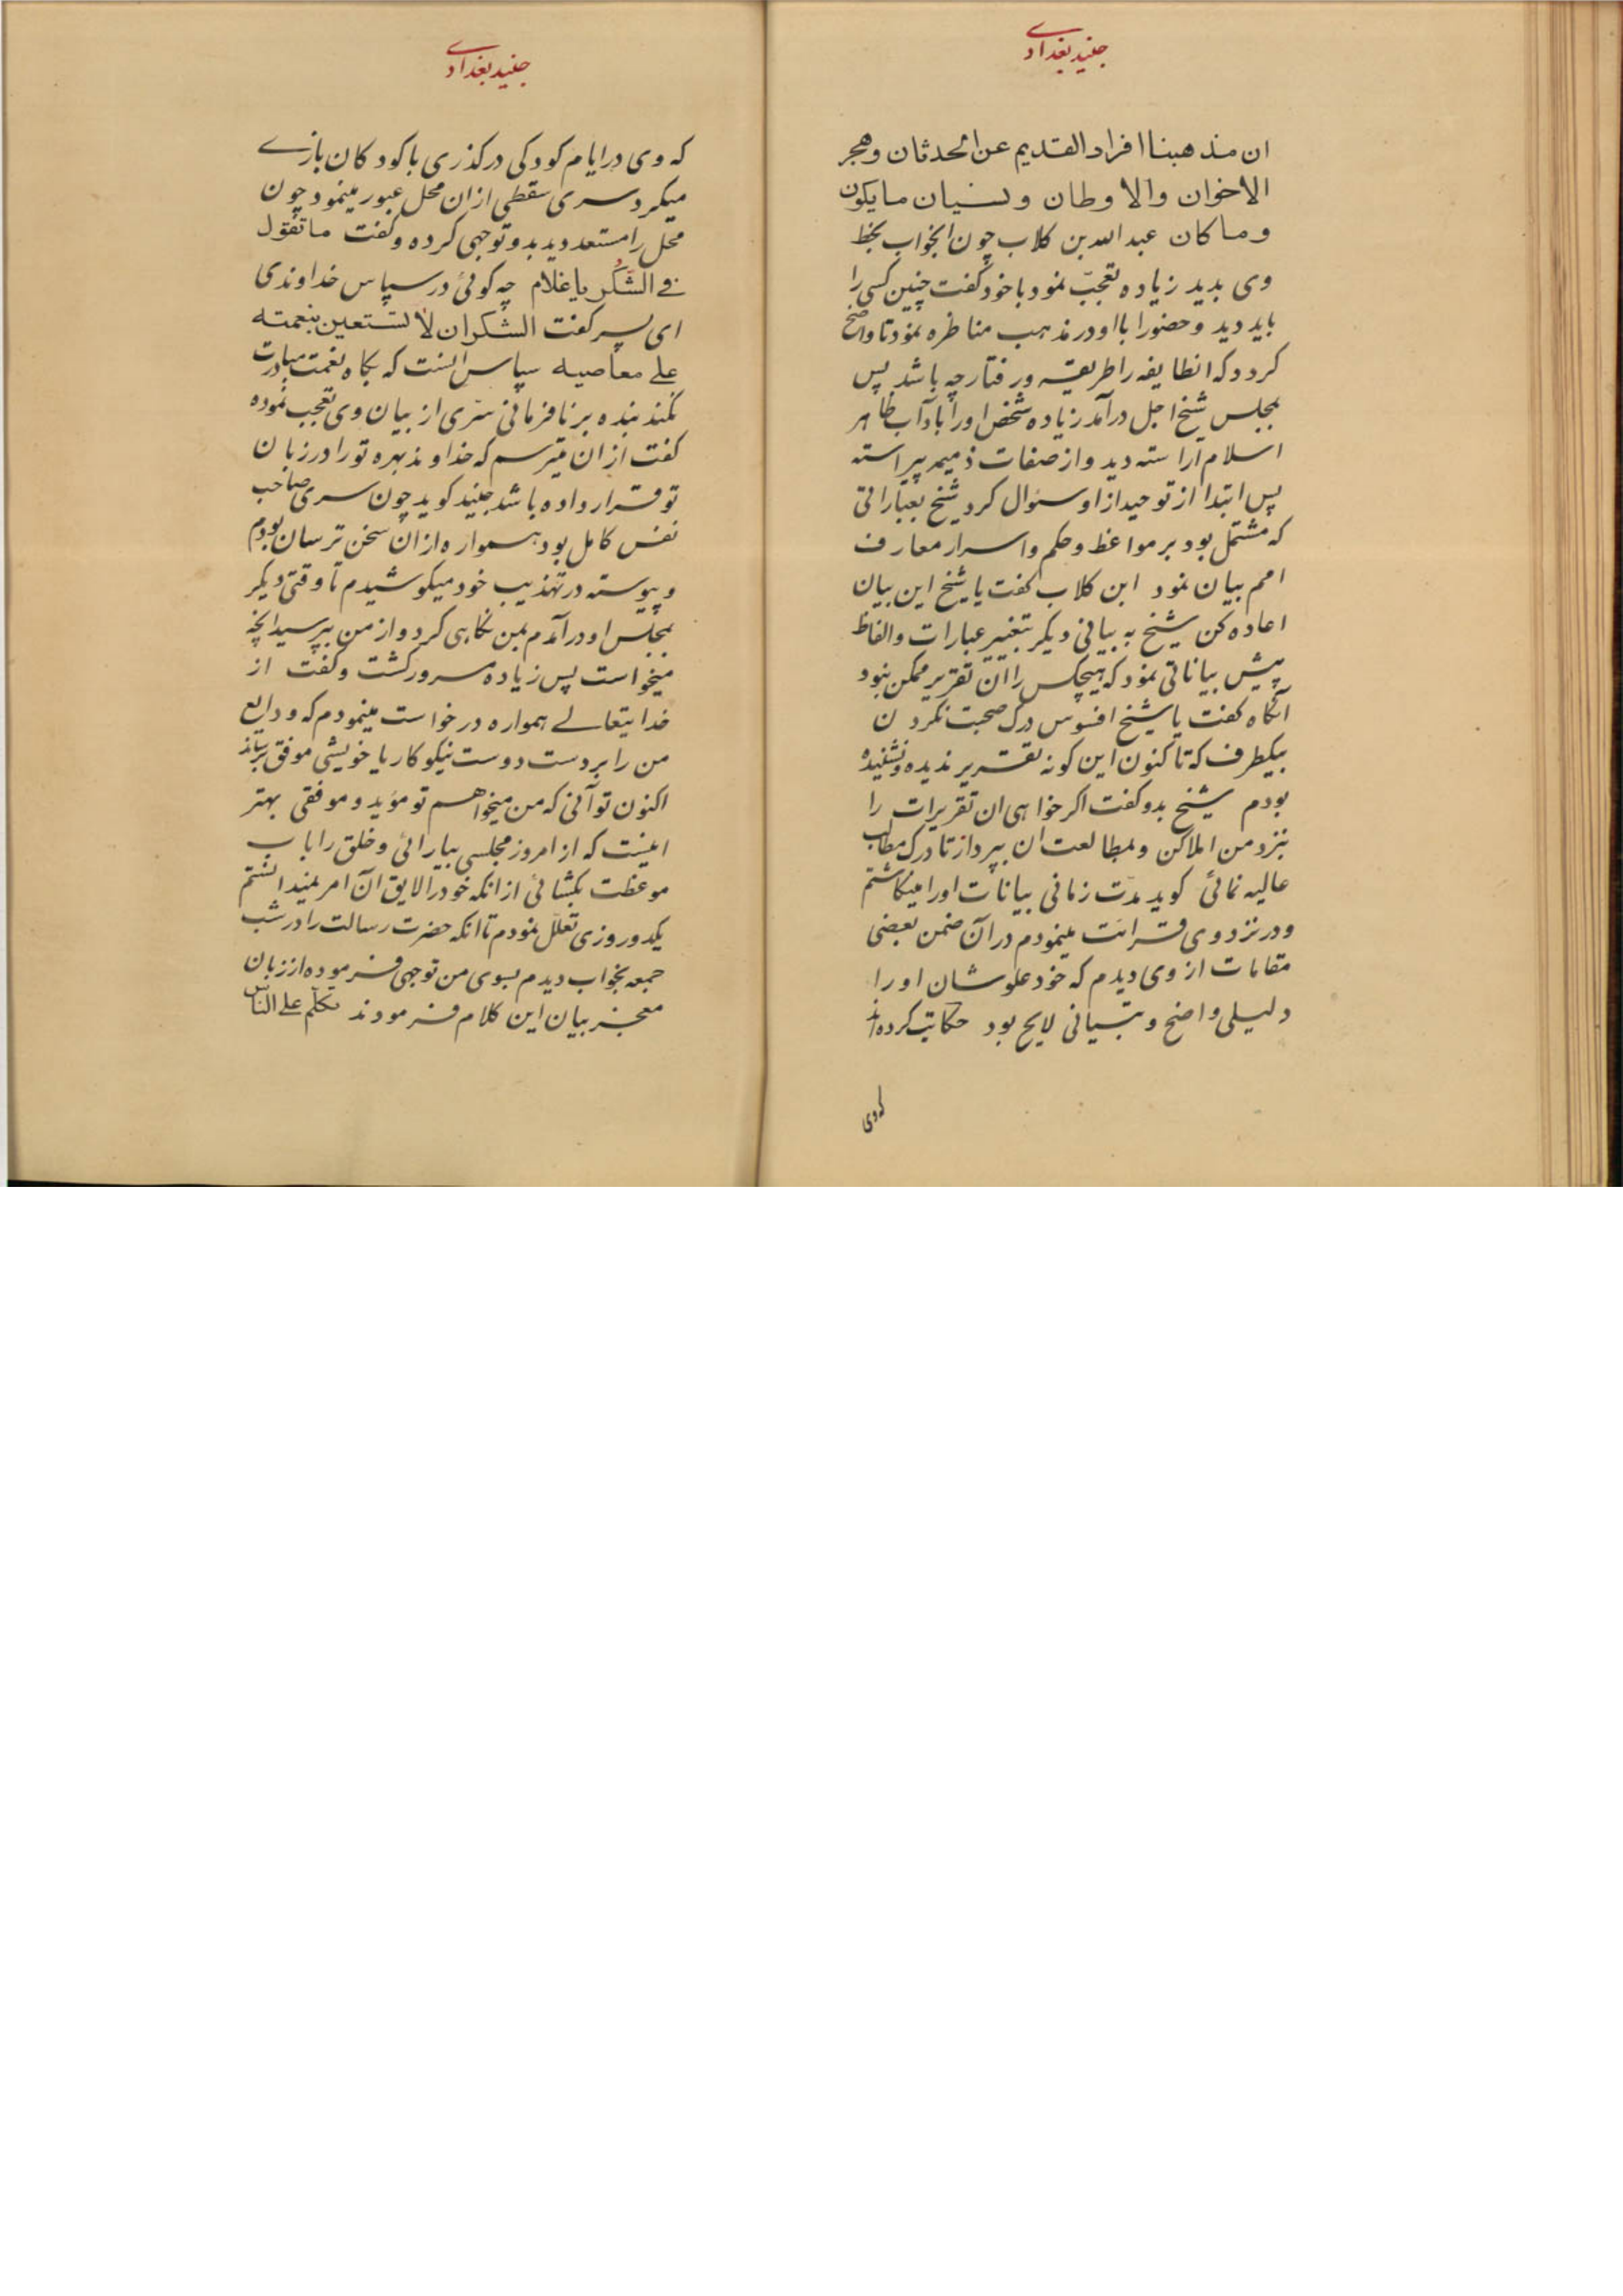 جنید بغدادی
ان مذهبنا افراد القدیم عن الحدثان وهجر
الاخوان والاوطان ونسیان مایکون
وماکان عبدالله بن کلاب چون انجواب بخط
وی بدید زیاده تعجّب نمود با خود گفت چنین کسی را
باید دید وحضورا بااو در مذهب مناظره نمود تا واضح
کردد که انطایفه را طریقه ورفتار چه باشد پس
بمجلس شیخ اجل درآمد زیاده شخص اورا بآداب ظاهر
اسلام اراسته دید واز صفات ذمیمه پیراسته
پس ابتدا از توحید از او سئوال کرد شیخ بعباراتی
که مشتمل بود بر مواعظ وحکم واسرار معارف
امم بیان نمود ابن کلاب گفت یا شیخ این بیان
اعاده کن شیخ به بیانی دیکر بتغییر عبارات والفاظ
پیش بیاناتی نمود که هیچکس را آن تقریر ممکن نبود
آنکاه گفت یا شیخ افسوس درک صحبت نکردن
بیکطرف که تاکنون این کونه تقریر ندیده ونشنیده
بودم شیخ بدو گفت اکر خواهی ان تقریرات را
نزد من املاکن وبمطالعت ان بپرداز تا درک مطالب
عالیه نمائی کوید مدّت زمانی بیانات اورا مینکاشتم
ودر نزد وی قرائت مینمودم در آن ضمن بعضی
مقامات از وی دیدم که خود علوشان اورا
دلیلی واضح وتبیانی لایح بود حکایت کرده‌اند
که وی
جنید بغدادی
که وی در ایام کودکی در کذری با کودکان بازی
میکرد سری سقطی از ان محل عبور مینمود چون
محل را مستعد دید بدو توجهی کرده وگفت ماتقول
فی الشکر یاغلام چه کوئی در سپاس خداوندی
ای پسر گفت الشکر ان لاتستعین بنعمته
علی معاصیه سپاس انست که بکاه نعمت مبادرت
نکند بنده بر نافرمانی سّری از بیان وی تعجب نموده
گفت از ان میترسم که خداوند بهره تورا در زبان
تو قرار داده باشد جنید کوید چون سری صاحب
نفس کامل بود همواره از ان سخن ترسان بودم
وپیوسته در تهذیب خود میکوشیدم تا وقتی دیکر
بمجلس او درآمدم بمن نکاهی کرد واز من بپرسید آنچه
میخواست پس زیاده مسرور کشت وگفت از
خدایتعالی همواره درخواست مینمودم که ودایع
من را بر دست دوست نیکوکار یا خویشی موفق برساند
اکنون تو آنی که من میخواهم تو موید وموفقی بهتر
اینست که از امروز مجلسی بیارائی وخلق را باب
موعظت بکشائی از انکه خودرا لایق ان امر نمیدانستم
یکدو روزی تعلّل نمودم تا انکه حضرت رسالت را در شب
جمعه بخواب دیدم بسوی من توجهی فرموده از زبان
معجز بیان این کلام فرمودند تکلّم علی الناس